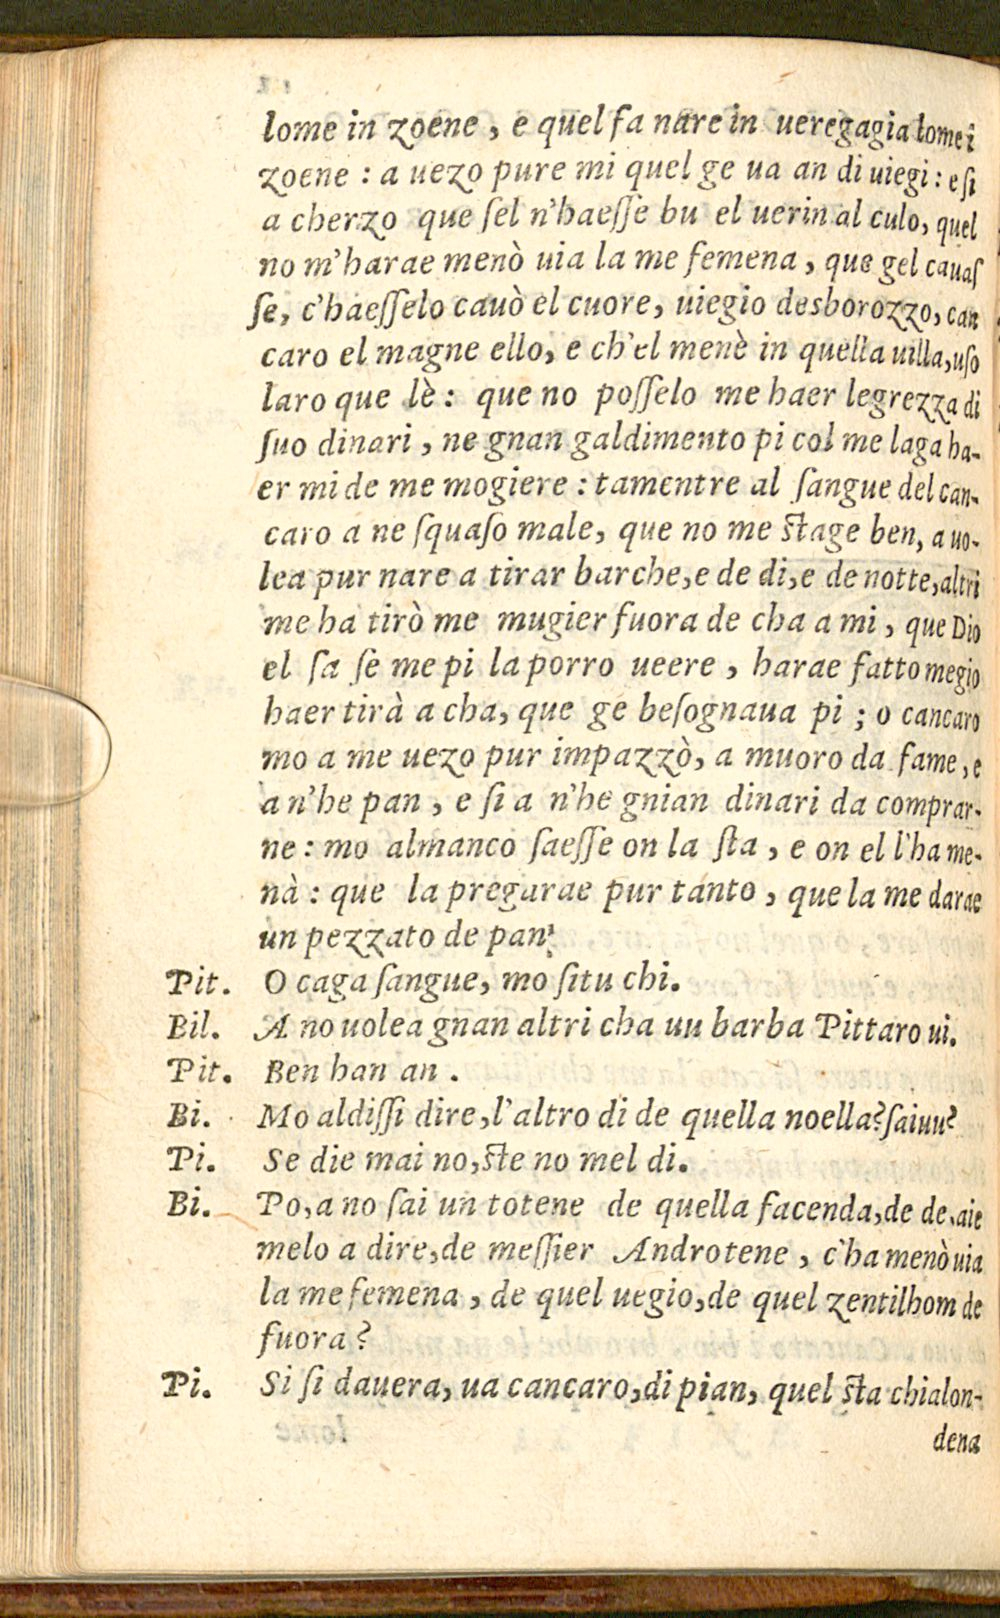 lome in zoene, e quel fa nare in ueregagia lome i
zoene: a uezo pure mi quel ge ua an di uiegi: e ſi
a cherzo que ſel n'haeſſe bu el uerin al culo, quel
no m'harae menò uia la me femena, que gel cauaſ
ſe, c'haeſſelo cauò el cuore, uiegio desborozzo, can
caro el magne ello, e ch'el menè in quella uilla, uſo
laro que lè: que no poſſelo me haer legrezza di
ſuo dinari, ne gnan galdimento pi col me laga ha-
er mi de me mogiere: tamentre al ſangue del can-
caro a ne ſquaſo male, que no me ſtage ben, a uo-
lea pur nare a tirar barche, e de di, e de notte, altri
me ha tirò me mugier fuora de cha a mi, que Dio
el ſa ſe me pi la porro ueere, harae fatto megio
haer tirà a cha, que ge beſognaua pi; o cancaro
mo a me uezo pur impazzò, a muoro da fame, e
a n'he pan, e ſi a n'he gnian dinari da comprar-
ne: mo almanco ſaeſſe on la ſta, e on el l'ha me-
nà: que la pregarae pur tanto, que la me darae
un pezzato de pan?
Pit. O caga ſangue, mo ſitu chi.
Bil. A no uolea gnan altri cha uu barba Pittaro ui.
Pit. Ben han an.
Bi. Mo aldiſſi dire, l'altro di de quella noella? ſaiuu?
Pi. Se die mai no, ſte no mel di.
Bi. Po, a no ſai un totene de quella facenda, de de, aie
melo a dire, de meſſier Androtene, c'ha menò uia
la me femena, de quel uegio, de quel zentilhom de
fuora?
Pi. Si ſi dauera, ua cancaro, di pian, quel ſta chialon-
dena